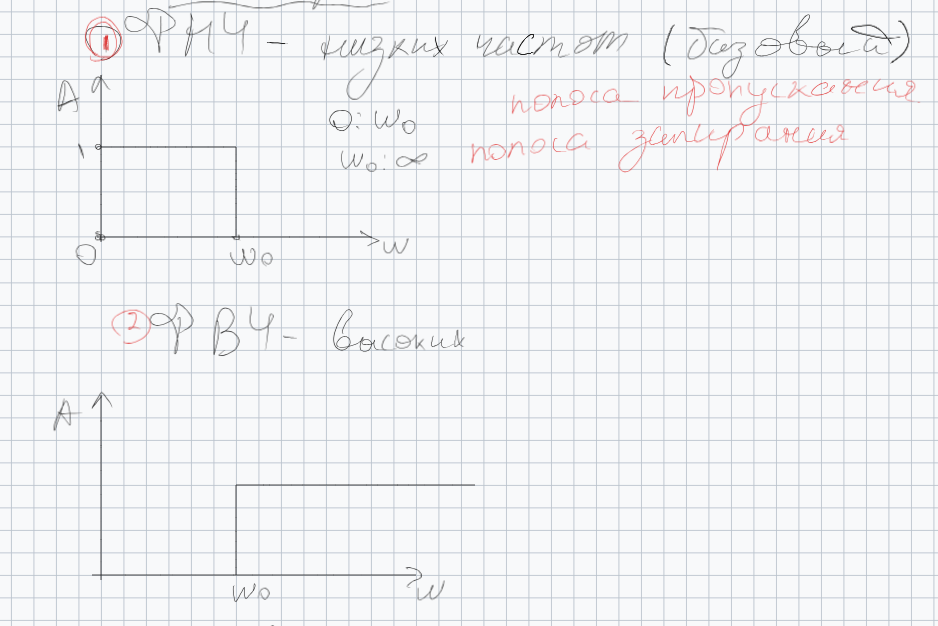 ① ФНЧ - низких частот (базовый)
A
0:w₀ полоса пропускания
1
w₀:∞ полоса запирания
0 w₀ w
② ФВЧ - высоких
A
w₀ w